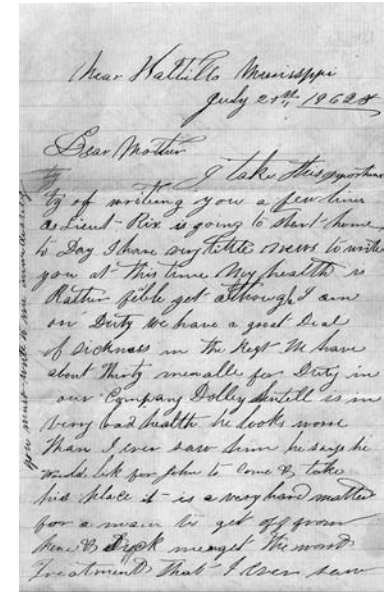 Near Saltillo Mississppi
July 21st, 1862
Dear Mother
I take this opportuni
ty of writing you a few lines
as Lieut Rix is going to start home
to Day I have very little news to write
you at this time My health is
Rather feble yet although I am
on Duty we have a good Deal
of sickness in the Regt We have
about Thirty men able for Duty in
our Company Dolley Sentell is in
very bad health he looks worse
than I ever saw him he says he
would lik for John to Come & take
his place it is a very hard matter
for a man to get off from
here & Sick men get the worst
Treatment that I ever saw
you must write to me immediately